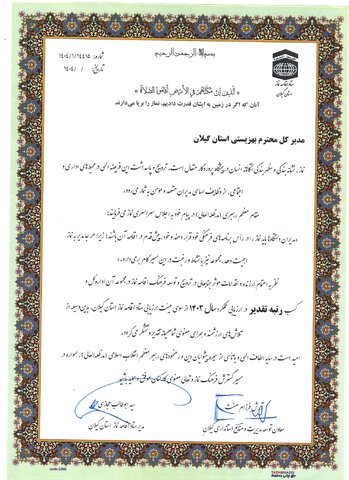 بسم الله الرحمن الرحیم
شماره: ۱۴۰۴/۱/۱۴۴۶۵
تاریخ: ۱۴۰۴/۰
ستاد اقامه نماز
استان گیلان
« الَّذِینَ إِن مَّکَّنَّاهُمْ فِی الْأَرْضِ أَقَامُوا الصَّلَاةَ »
آنان که اگر در زمین به ایشان قدرت دادیم، نماز را برپا می‌دارند
مدیر کل محترم بهزیستی استان گیلان
نماز، نشانه بندگی و مظهر بندگی آگاهانه انسان در پیشگاه پروردگار متعال است. ترویج و پاسداشت این فریضه الهی در محیط‌های اداری و
اجتماعی، از وظایف اساسی مدیران متعهد و مومن به شمار می‌رود.
مقام معظم رهبری (مدظله العالی) در پیام خود به اجلاس سراسری نماز می‌فرمایند:
«مدیران دستگاه‌ها باید نماز را در رأس برنامه‌های فرهنگی خود قرار دهند و خود پیش‌قدم در اقامه آن باشند؛ زیرا هر جا مدیر به نماز
اهمیت دهد، مجموعه نیز با نشاط و رغبت در این مسیر گام برمی‌دارد.»
نظر به اهتمام ارزنده و اقدامات موثر جنابعالی در ترویج و توسعه فرهنگ اقامه نماز در مجموعه آن اداره کل و
کسب رتبه تقدیر در ارزیابی عملکرد سال ۱۴۰۳ از سوی هیئت ارزیابی ستاد اقامه نماز استان گیلان، بدین‌وسیله از
تلاش‌های ارزشمند و همراهی معنوی شما صمیمانه تقدیر و تشکر می‌گردد.
امید است در سایه الطاف الهی و با تاسی از سیره پیشوایان دین و رهنمودهای رهبر معظم انقلاب اسلامی (مدظله العالی)، همواره در
مسیر گسترش فرهنگ نماز و تعالی معنوی کارکنان موفق و موید باشید
سید ابوطالب حجازی
مدیر ستاد اقامه نماز استان گیلان
معاون توسعه مدیریت و منابع استانداری گیلان
code:2008